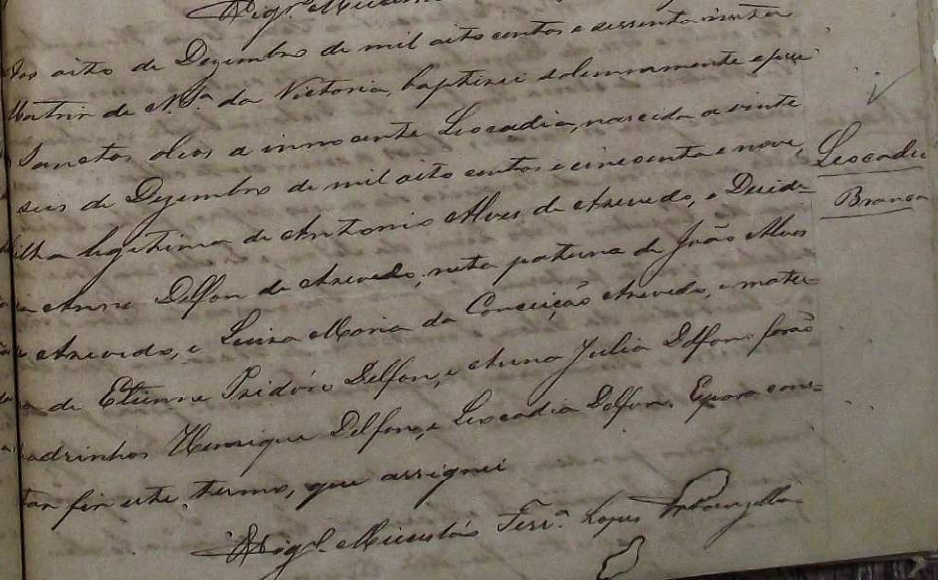 Vigrº.
Aos oito de Dezembro de mil oito centos e sessenta nesta
Matriz de N. Sª da Victoria, baptizei solemnemente e puz
Sanctos oleos a innocente Leocadia, nascida a vinte
seis de Dezembro de mil oito centos e cincoenta e nove,
filha legitima de Antonio Alves de Azevedo, e Deside-
ria Anne Delfon de Azevedo; neta paterna de João Alves
de Azevedo, e Luiza Maria da Conceição Azevedo, e mater-
na de Etienne Izidóre Delfon, e Anna Julia Delfon: forão
padrinhos Henrique Delfon, e Leocadia Delfon. E para cons-
tar fiz este termo, que assignei
Vigrº. Ferrª. Lopes
Leocadia
Branca